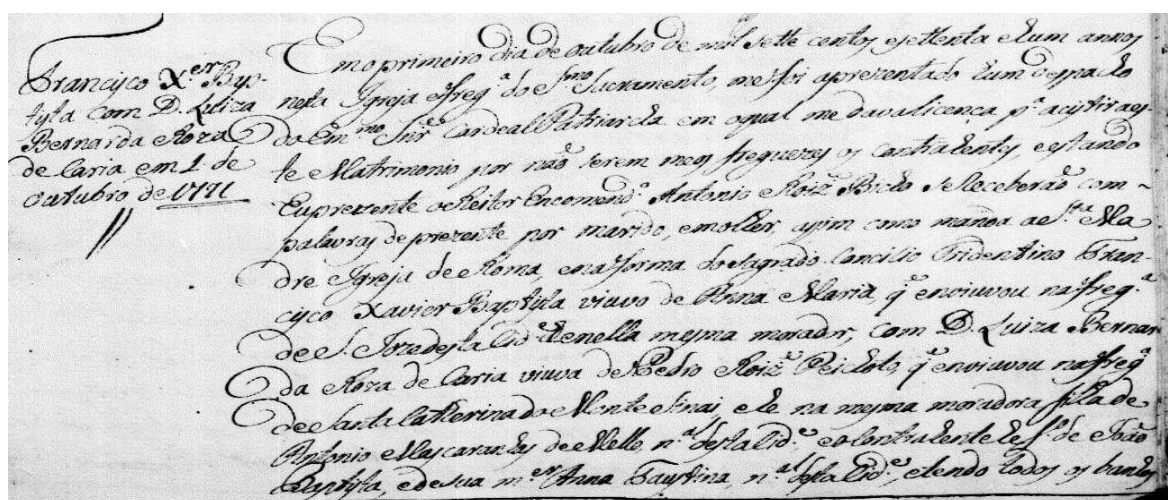 Francisco X.er Bap-
tista com D. Luiza
Bernarda Roza
de Caria em 1 de
outubro de 1771
Em o primeiro dia de outubro de mil sette centos e settenta e hum annos
nesta Igreja e freg.ª do S.mo Sacramento, me foi aprezentado hum despacho
do Em.mo Snr. Cardeal Patriarcha em o qual me dava licença p.ª acistir a es-
te Matrimonio por não serem meus freguezes os contrahentes, e estando
Eu prezente o Reitor Encomend.º Antonio Roiz Bicho se Receberão com
palavras de prezente por marido, e molher, assim como manda a S.ta Ma
dre Igreja de Roma, e na forma do Sagrado Concilio Tridentino Fran-
cisco Xavier Baptista viuvo de Anna Maria, q enviuvou na freg.ª
de S. Joze desta Cid.e e nella mesma morador, com D. Luiza Bernar
da Roza de Caria viuva de Pedro Roiz Peichoto, q enviuvou na freg.ª
de Santa Catherina do Monte Sinai, e he na mesma moradora filha de
Antonio Mascarenhas de Mello, n.al desta Cid.e, e o Contrahente he f.º de João
Baptista, e de sua m.er Anna Faustina, n.al desta Cid.e, e lendo todos os banhos